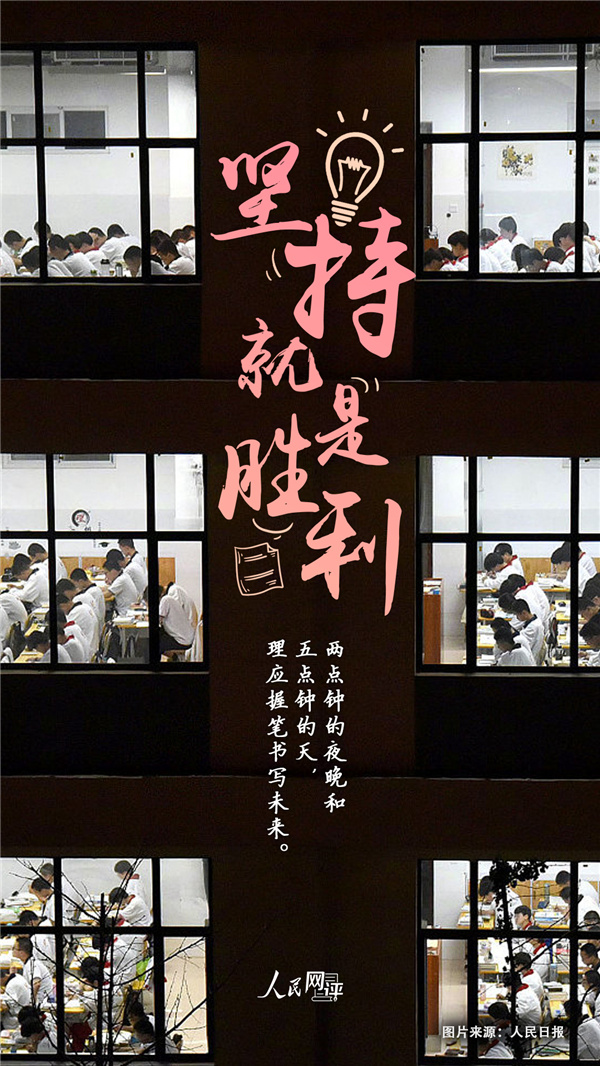 坚持
就是
胜利
两点钟的夜晚和
五点钟的天，
理应握笔书写未来。
人民网评
图片来源：人民日报